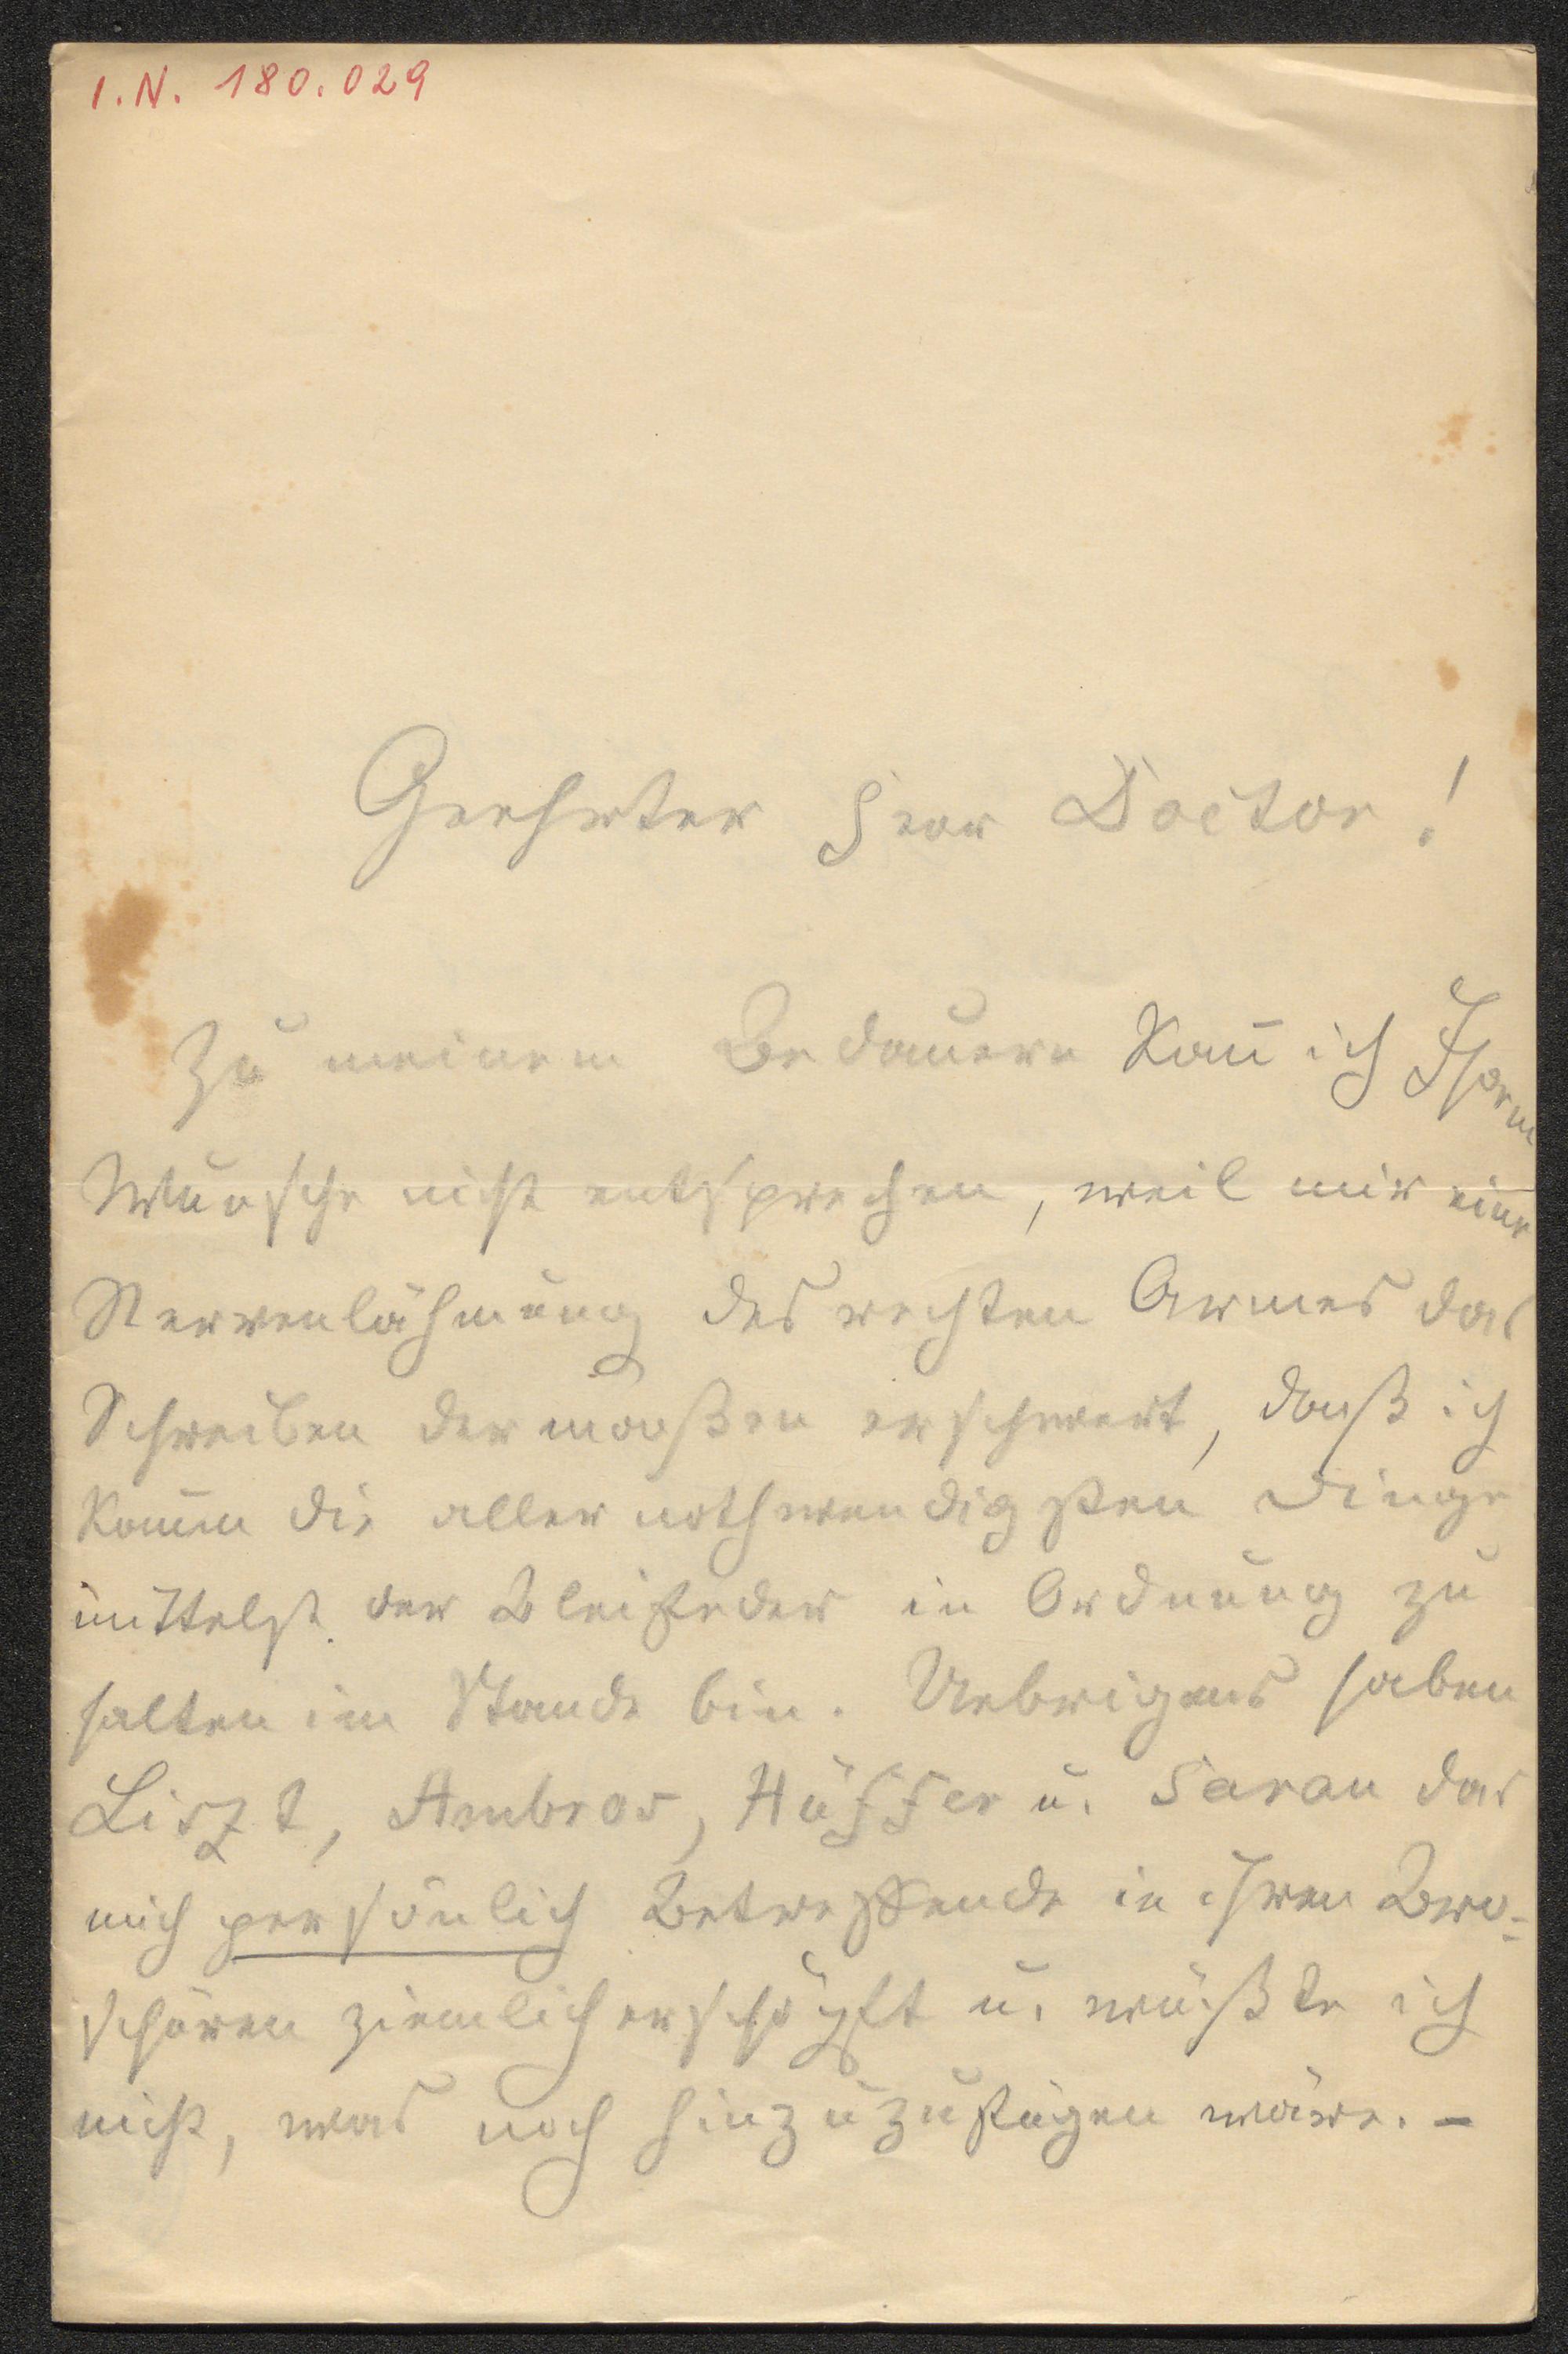 I.N. 180.029
Geehrter Herr Doctor!
Zu meinem Bedauern kan̄ ich Ihrem
Wunsche nicht entsprechen, weil mir eine
Nervenlähmung des rechten Armes das
Schreiben dermaßen erschwert, daß ich
kaum die allernothwendigsten Dinge
mittelst der Bleifeder in Ordnung zu
halten im Stande bin. Uebrigens haben
Liszt, Ambros, Hüffer u. Saran das
mich persönlich Betreffende in ihren Bro-
schüren ziemlich erschöpft u. wüßte ich
nicht, was noch hinzuzufügen wäre. –